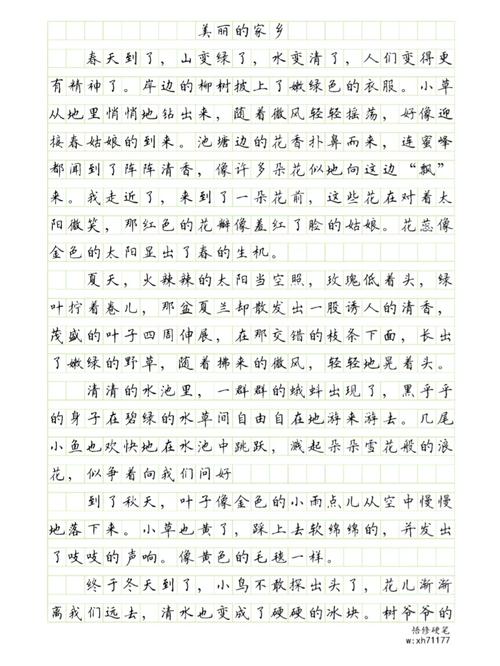 美丽的家乡
春天到了，山变绿了，水变清了，人们变得更
有精神了。岸边的柳树披上了嫩绿色的衣服。小草
从地里悄悄地钻出来，随着微风轻轻摇荡，好像迎
接春姑娘的到来。池塘边的花香扑鼻而来，连蜜蜂
都闻到了阵阵清香，像许多朵花似地向这边“飘”
来。我走近了，来到了一朵花前，这些花在对着太
阳微笑，那红色的花瓣像羞红了脸的姑娘。花蕊像
金色的太阳显出了春的生机。
夏天，火辣辣的太阳当空照，玫瑰低着头，绿
叶拧着卷儿，那盆夏兰却散发出一股诱人的清香，
茂盛的叶子四周伸展，在那交错的枝条下面，长出
了嫩绿的野草，随着拂来的微风，轻轻地晃着头。
清清的水池里，一群群的蛾蚪出现了，黑乎乎
的身子在碧绿的水草间自由自在地游来游去。几尾
小鱼也欢快地在水池中跳跃，溅起朵朵雪花般的浪
花，似争着向我们问好
到了秋天，叶子像金色的小雨点儿从空中慢慢
地落下来。小草也黄了，踩上去软绵绵的，并发出
了吱吱的声响。像黄色的毛毯一样。
终于冬天到了，小鸟不敢探出头了，花儿渐渐
离我们远去，清水也变成了硬硬的冰块。树爷爷的
悟修硬笔
w:xh71177